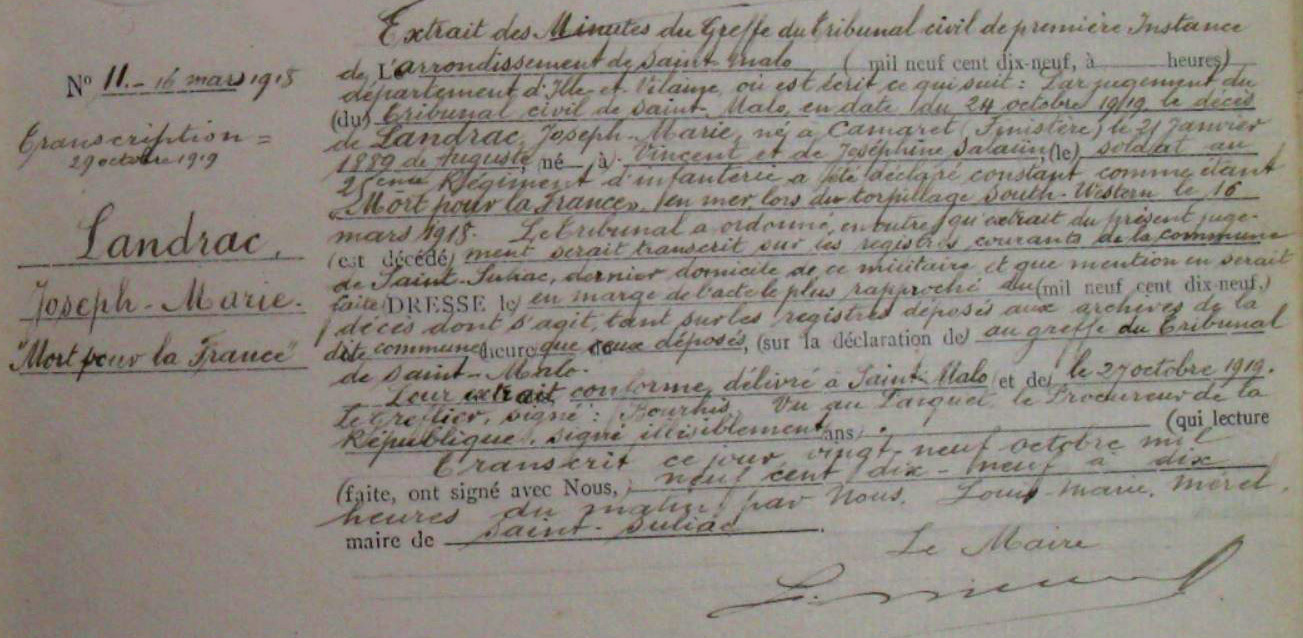 N° 11. - 16 mars 1918
Transcription =
29 octobre 1919
Landrac,
Joseph-Marie.
"Mort pour la France"
Extrait des Minutes du Greffe du Tribunal civil de première Instance
de L'arrondissement de Saint Malo ( mil neuf cent dix-neuf, à heures)
département d'Ille-et-Vilaine, où est écrit ce qui suit : Par jugement du
(du) Tribunal civil de Saint-Malo, en date du 24 octobre 1919, le décès
de Landrac, Joseph-Marie, né à Camaret (Finistère) le 21 Janvier
1889 de Auguste, né à Vincent et de Joséphine Salaün, (le) soldat au
25ème Régiment d'infanterie a été déclaré constant comme étant
"Mort pour la France", en mer lors du torpillage South-Western le 16
mars 1918. Le tribunal a ordonné, en outre, qu'extrait du présent juge-
(est décédé) ment serait transcrit sur les registres courants de la commune
de Saint-Suliac, dernier domicile de ce militaire et que mention en serait
faite (DRESSE le) en marge de l'acte le plus rapproché du (mil neuf cent dix-neuf,)
décès dont s'agit, tant sur les registres déposés aux archives de la
dite commune heure que ceux déposés, (sur la déclaration de) au greffe du Tribunal
de Saint-Malo.
Pour extrait conforme délivré à Saint-Malo et de le 27 octobre 1919.
Le Greffier, signé : Bourhis. Vu au Parquet le Procureur de la
République, signé illisiblement ans . (qui lecture
Transcrit ce jour vingt-neuf octobre mil
(faite, ont signé avec Nous, neuf cent dix-neuf à dix
heures du matin, par Nous, Louis-Marie, Mérel,
maire de Saint-Suliac.
Le Maire